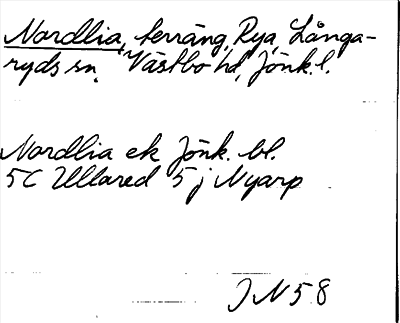 Nordlia, terräng, Rya, Långa-
ryds sn, Västbo hd, Jönk. l.
Nordlia ek Jönk. bl.
5C Ullared 5j Nyarp
JN58